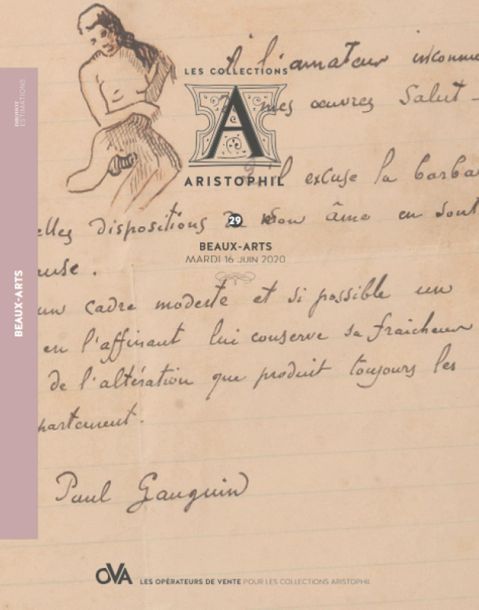 à l'amateur inconnu
LES COLLECTIONS
mes œuvres Salut -
A
qu'il excuse la barba
ARISTOPHIL
elles dispositions de mon âme en sont
29
BEAUX-ARTS
MARDI 16 JUIN 2020
euse.
un cadre modeste et si possible un
en l'affinant lui conserve sa fraîcheur
de l'altération que produit toujours les
partement.
Paul Gauguin
OVA LES OPÉRATEURS DE VENTE POUR LES COLLECTIONS ARISTOPHIL
BEAUX-ARTS
ESTIMATIONS